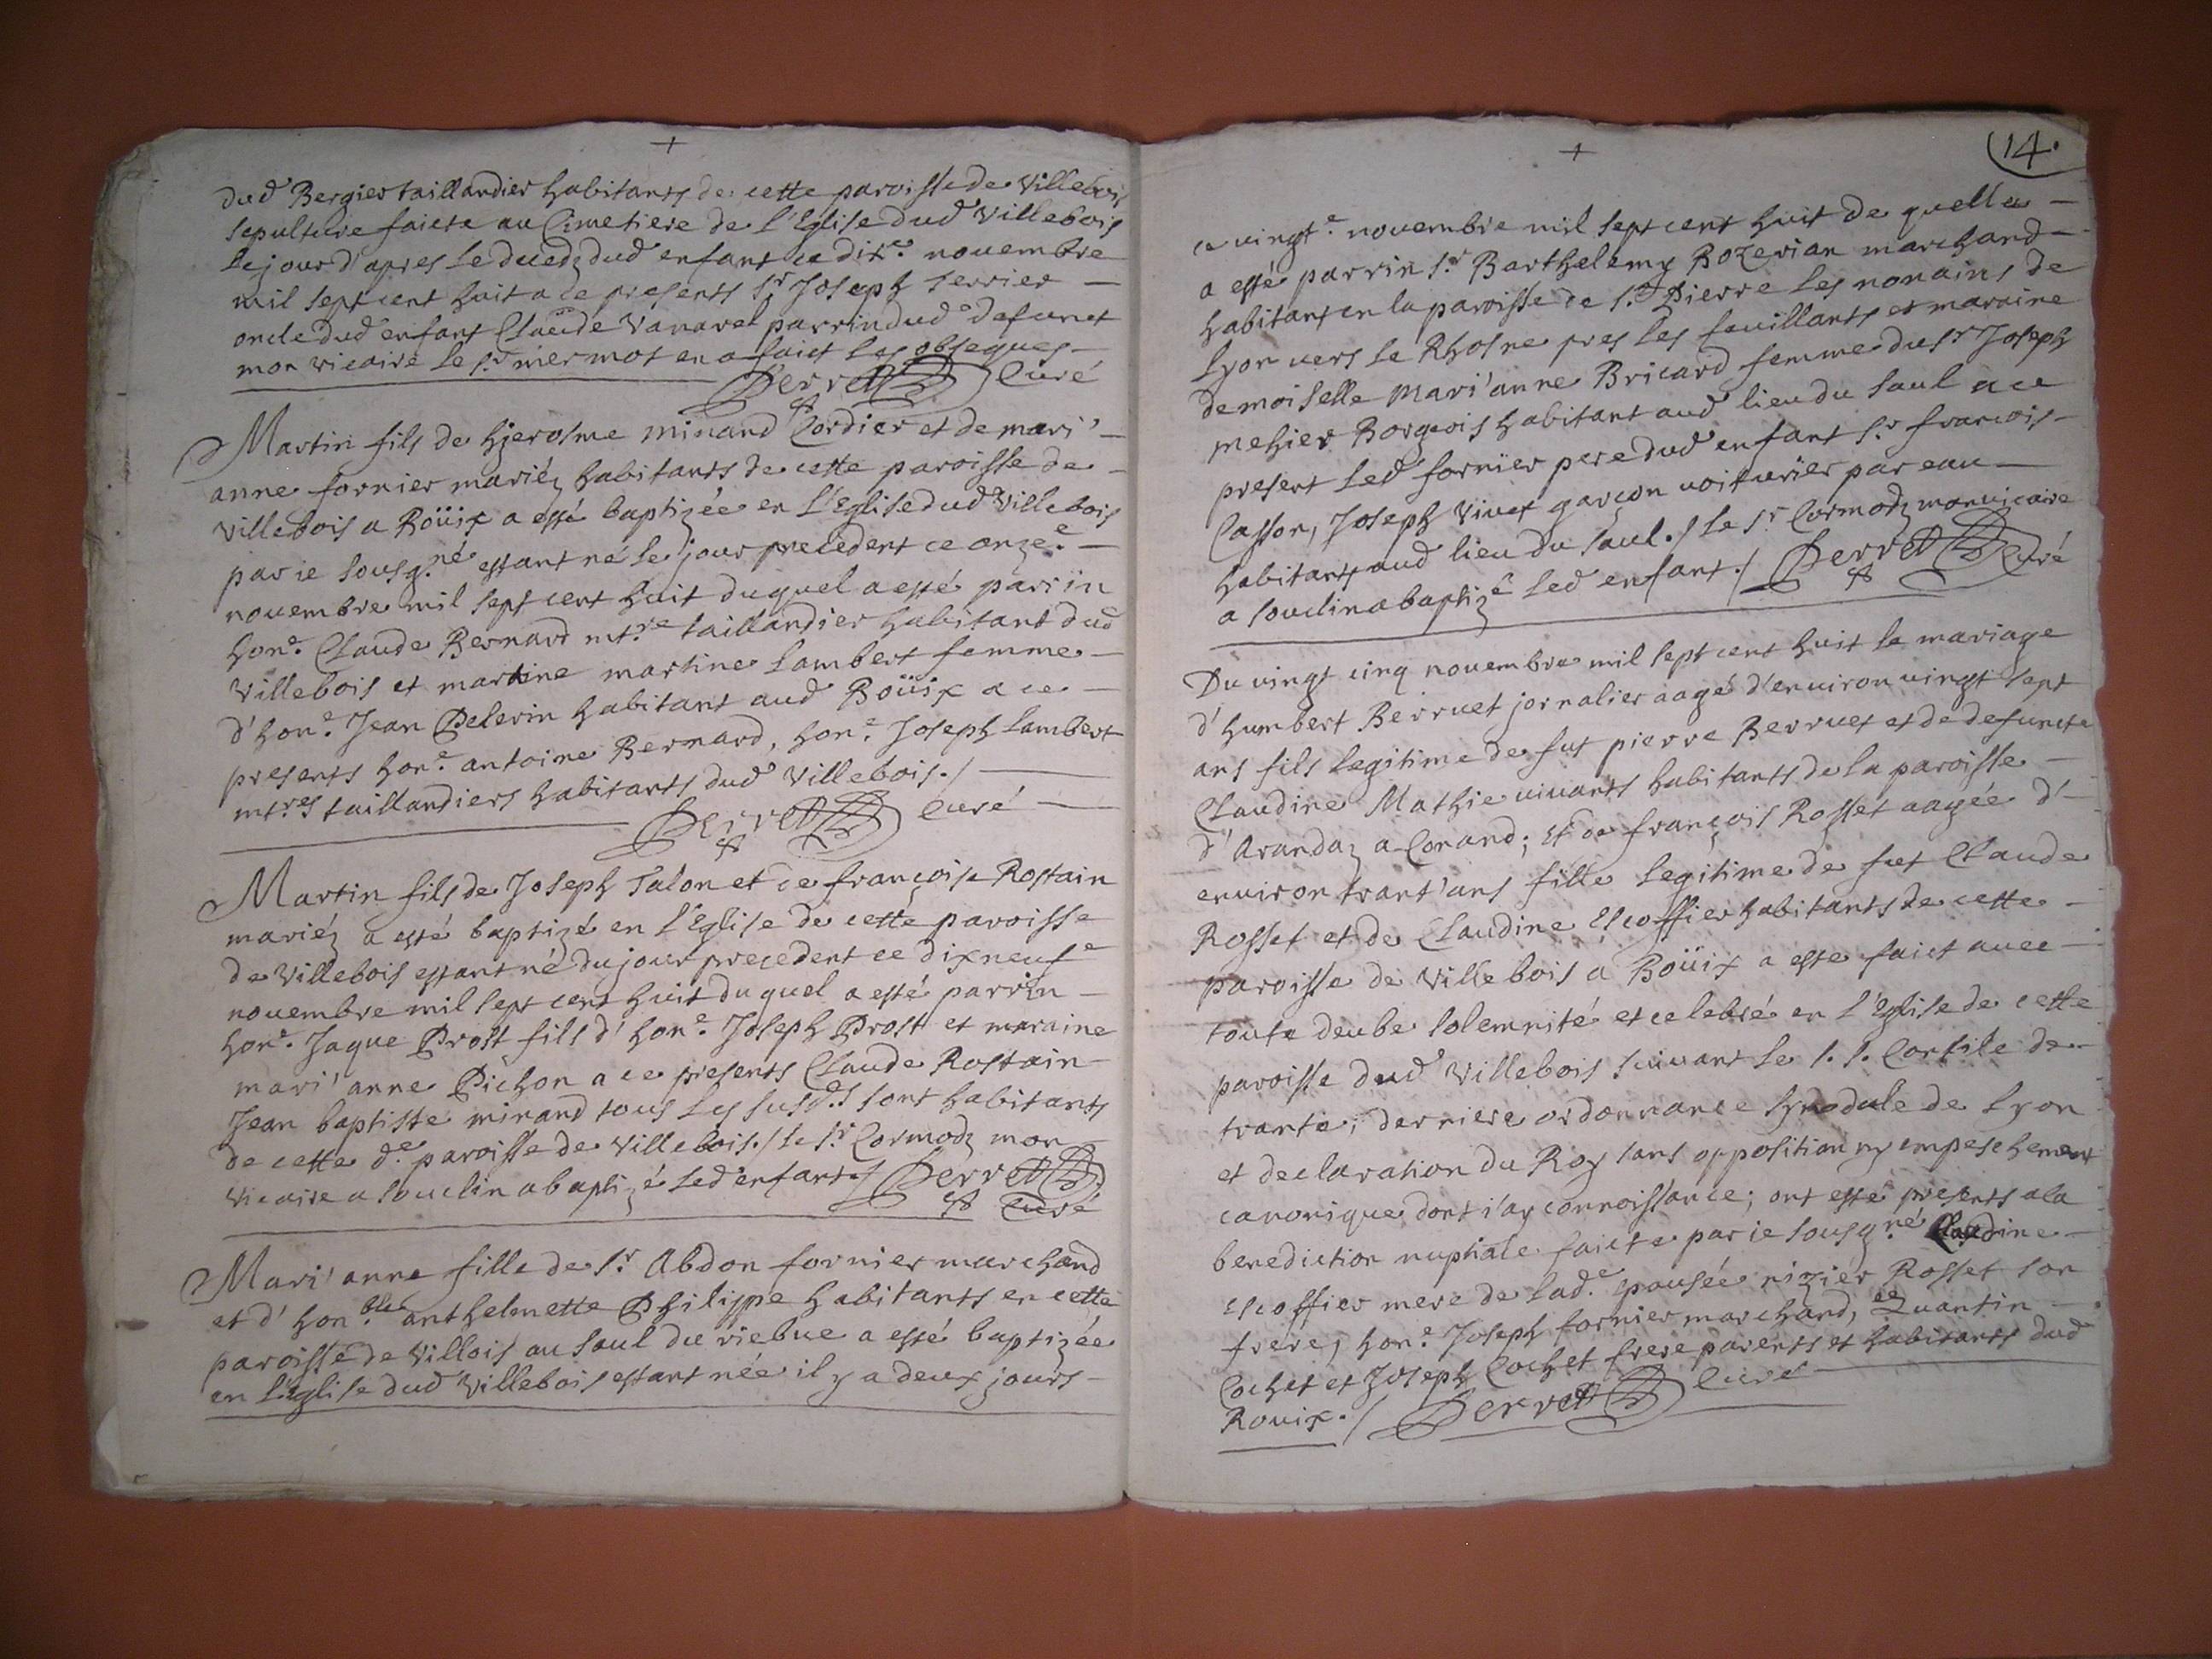 +
dud Bergier taillandier habitants de cette paroisse de Villebois
sepulture faicte au Cimetiere de l'Eglise dud Villebois
le jour d'apres le duedz dud enfant ce dix.e novembre
mil sept cent huit a ce presents Sr Joseph serrier —
oncle dud enfant Claude Vanarel parrin dud defunct
mon vicaire le Sr mermot en a faict les obseques —
Perret Curé
Martin fils de hjerosme minand Cordier et de mari' —
anne fornier mariéz habitants de cette paroisse de —
Villebois a Roüix a esté baptizée en l'Eglise dud Villebois
par ie sousg.né estant né le jour precedent ce onze.e —
novembre mil sept cent huit duquel a esté parrin
hon.e Claude Bernard mt.re taillandier habitant dud
Villebois et martine martine Lambert femme —
d'hon.e Jean Pelerin habitant aud Roüix a ce —
presents hon.e antoine Bernard, hon.e Joseph Lambert
mt.res taillandiers habitants dud Villebois./ —
Perret Curé —
Martin fils de Joseph Talon et de françoise Rostain
mariéz a esté baptizé en l'Eglise de cette paroisse
de Villebois estant né du jour precedent ce dixneuf.e
novembre mil sept cent huit duquel a esté parrin —
hon.e Jaque Prost fils d'hon.e Joseph Prost et maraine
mari'anne Pichon a ce presents Claude Rostain —
Jean baptiste minand tous les susd.s sont habitants
de cette d.e paroisse de Villebois./ le Sr Cormodz mon
vicaire a souclin a baptizé led enfant./ Perret
Curé
Mari'anne fille de Sr Abdon fornier marchand
et d'hon.ble anthelmette Philippe habitants en cette
paroisse de Villois au saul du riebue a esté baptizée
en l'Eglise dud Villebois estant née il y a deux jours —
14.
+
ce vingt.e novembre mil sept cent huit de quelle —
a esté parrin Sr Barthelemy Bozerian marchand —
habitant en la paroisse de St Pierre les nonains de
Lyon vers le Rhosne pres les feuillants et maraine
demoiselle Mari'anne Bricard femme du Sr Joseph
mehier Borgeois habitant aud lieu du saul a ce
present led fornier pere dud enfant Sr francois —
Casson, Joseph Vivet garçon voiturier par eau —
habitants aud lieu du saul./ le Sr Cormodz mon vicaire
a souclin a baptizé led enfant./ Perret Curé
Du vingt cinq novembre mil sept cent huit le mariage
d'humbert Berruet jornalier aagé d'environ vingt sept
ans fils legitime de fut pierre Berruet et de defuncte
Claudine Mathie vivants habitants de la paroisse —
d'Arandaz a Conand; et de françois Rosset aagée d' —
environ trant'ans fille legitime de fut Claude
Rosset et de Claudine Escoffier habitants de cette —
paroisse de Villebois a Roüix a esté faict avec —
toute deube solemnité et celebré en l'Eglise de cette
paroisse dud Villebois suivant le s. s. Consile de —
trante, derniere ordonnance synodale de Lyon
et declaration du Roy sans opposition ny empeschement
canonique dont i'ay connoissance; ont esté presents a la
benediction nuptiale faicte par ie sousg.né Claudine —
escoffier mere de lad.e epousée rizier Rosset son
frere, hon.e Joseph fornier marchand, et Quantin —
Cochet et Joseph Cochet frere parents et habitants dud
Rouix./ Perret Curé —